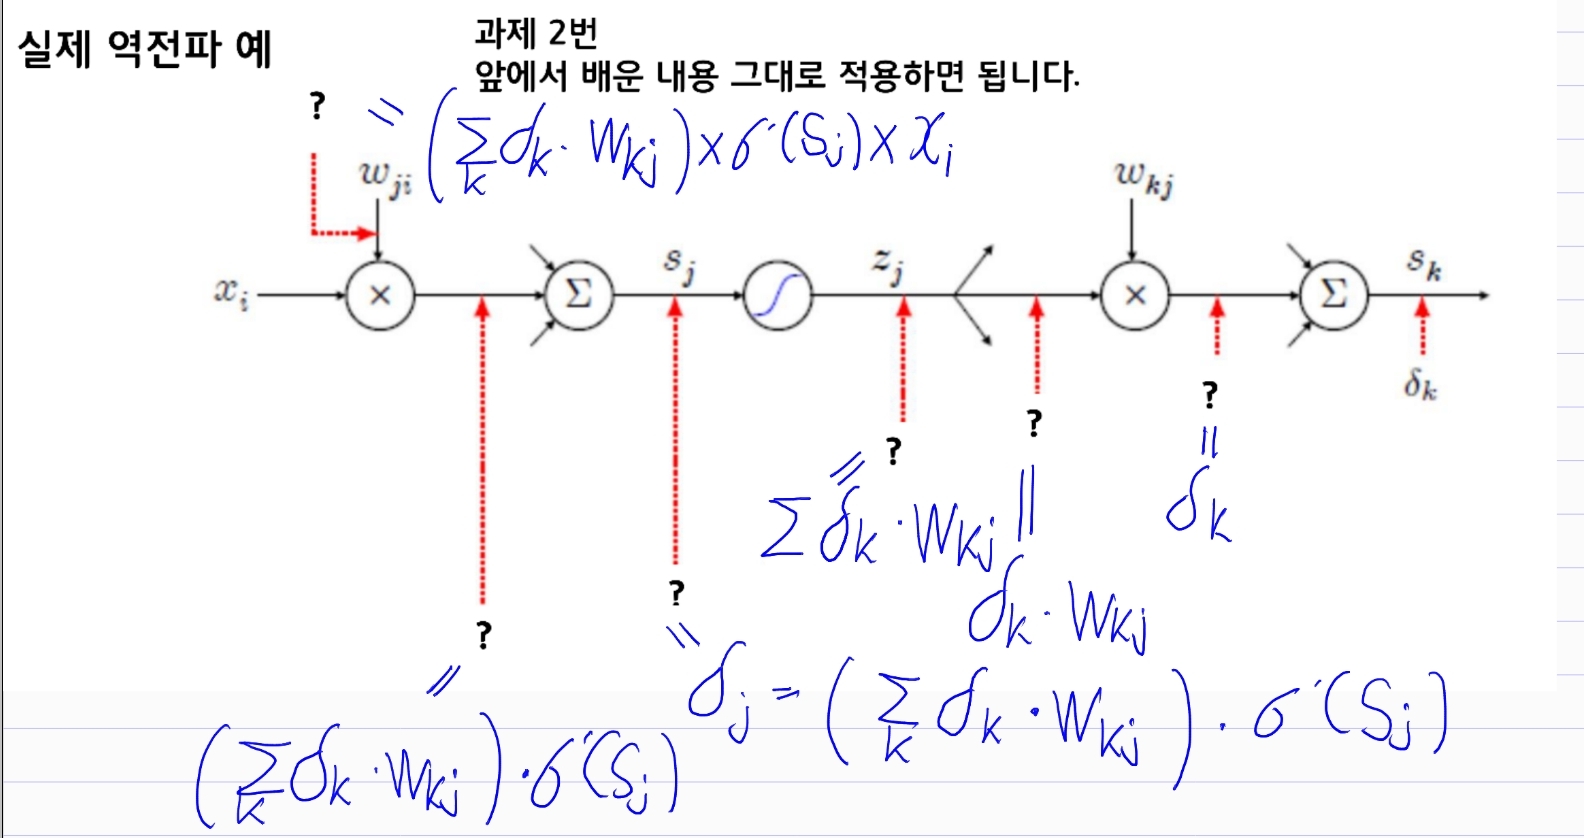 실제 역전파 예
과제 2번
앞에서 배운 내용 그대로 적용하면 됩니다.
? = (Σ_k δ_k · W_kj) × σ'(S_j) × x_i
w_ji
w_kj
x_i
×
Σ
s_j
z_j
×
Σ
s_k
δ_k
? = δ_k
? = δ_k · W_kj
? = Σ δ_k · W_kj
? = δ_j = (Σ_k δ_k · W_kj) · σ'(S_j)
? = (Σ_k δ_k · W_kj) · σ'(S_j)